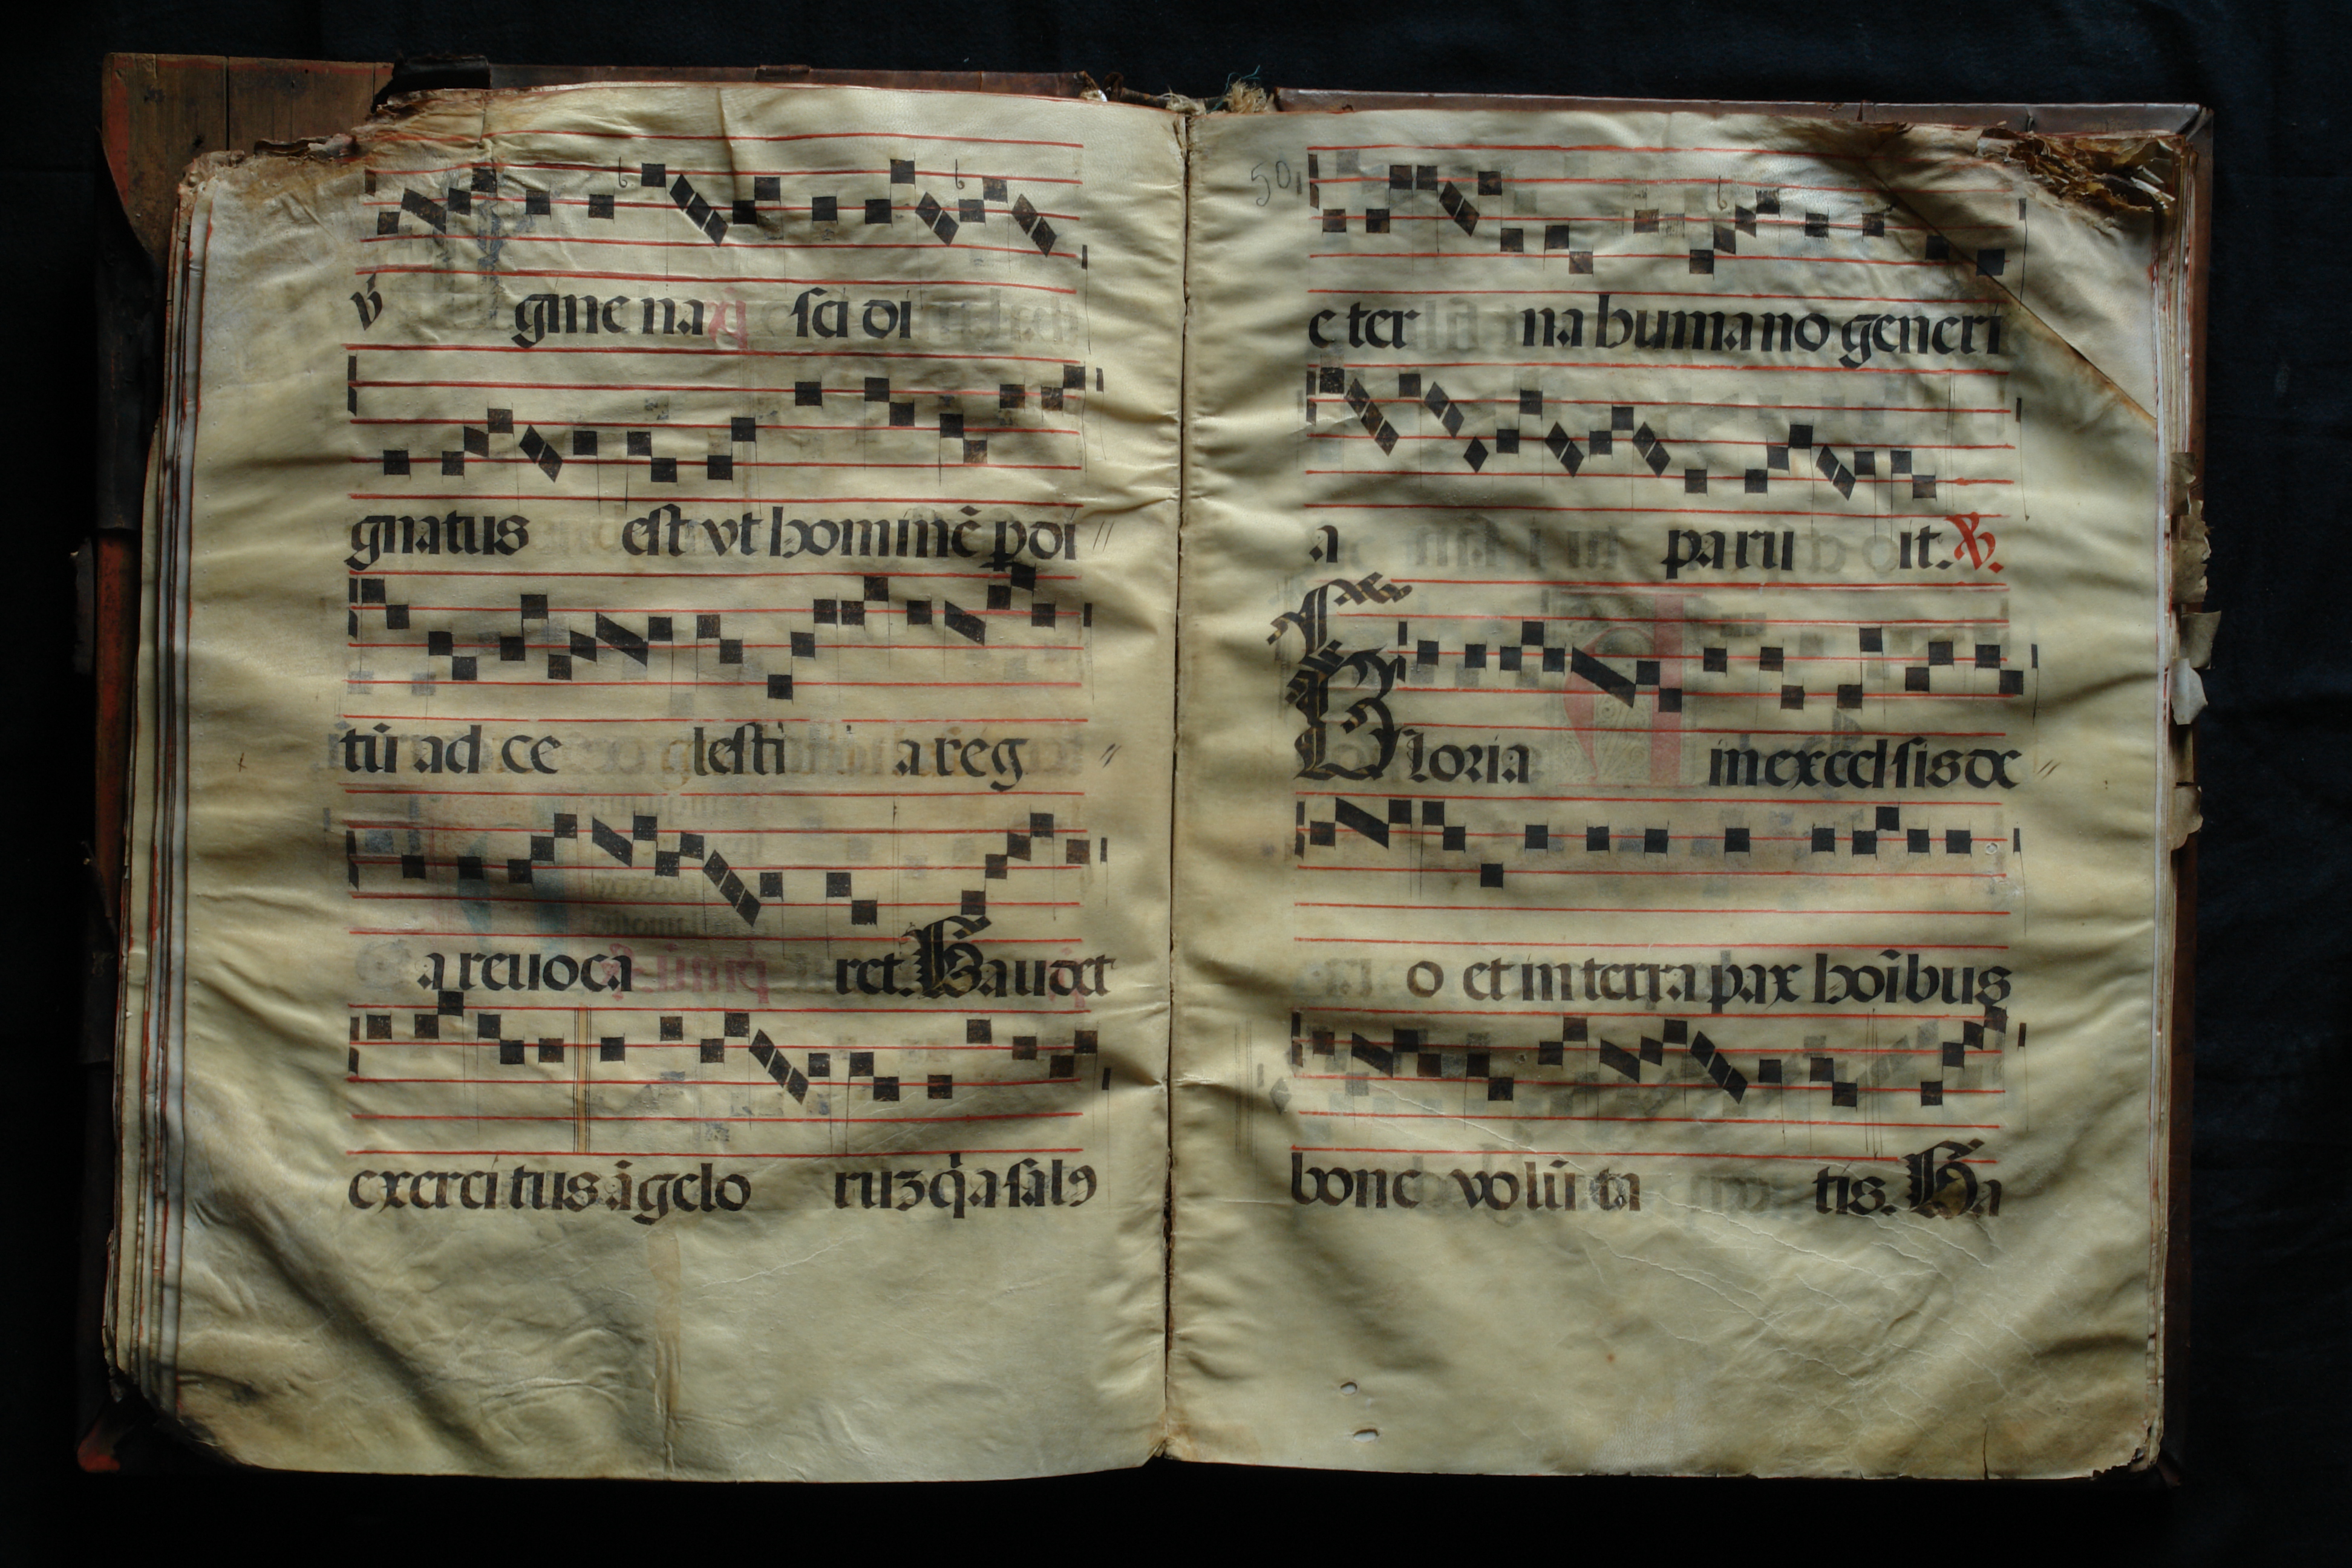 v̓ gine na sci di
gnatus est vt hominē ꝑdi
tū ad ce lesti a reg
a reuoca ret. Gaudet
exercitus āgelo ruꝫ q̓a salꝰ
50
e ter na humano generi
a paru it. ℣.
Gloria in excelsis de
o et in terra pax hoībus
bone volūta tis. Ga